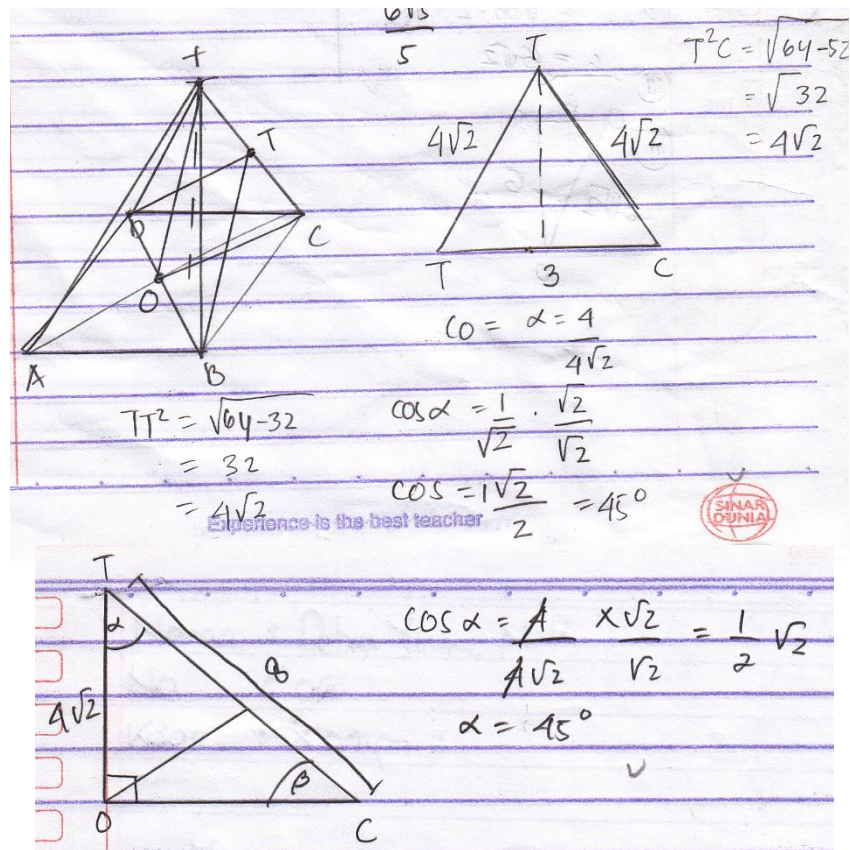 6√3
5
T
T
D
C
O
A
B
TT² = √64-32
= 32
= 4√2
T
4√2
4√2
T
3
C
T²C = √64-32
= √32
= 4√2
CO = α = 4
4√2
cosα = 1 . √2
√2 √2
cos = 1√2 = 45°
2
Experience is the best teacher
SINAR
DUNIA
T
α
4√2
8
β
O
C
cos α = 4 × √2 = 1 √2
4√2 √2 2
α = 45°